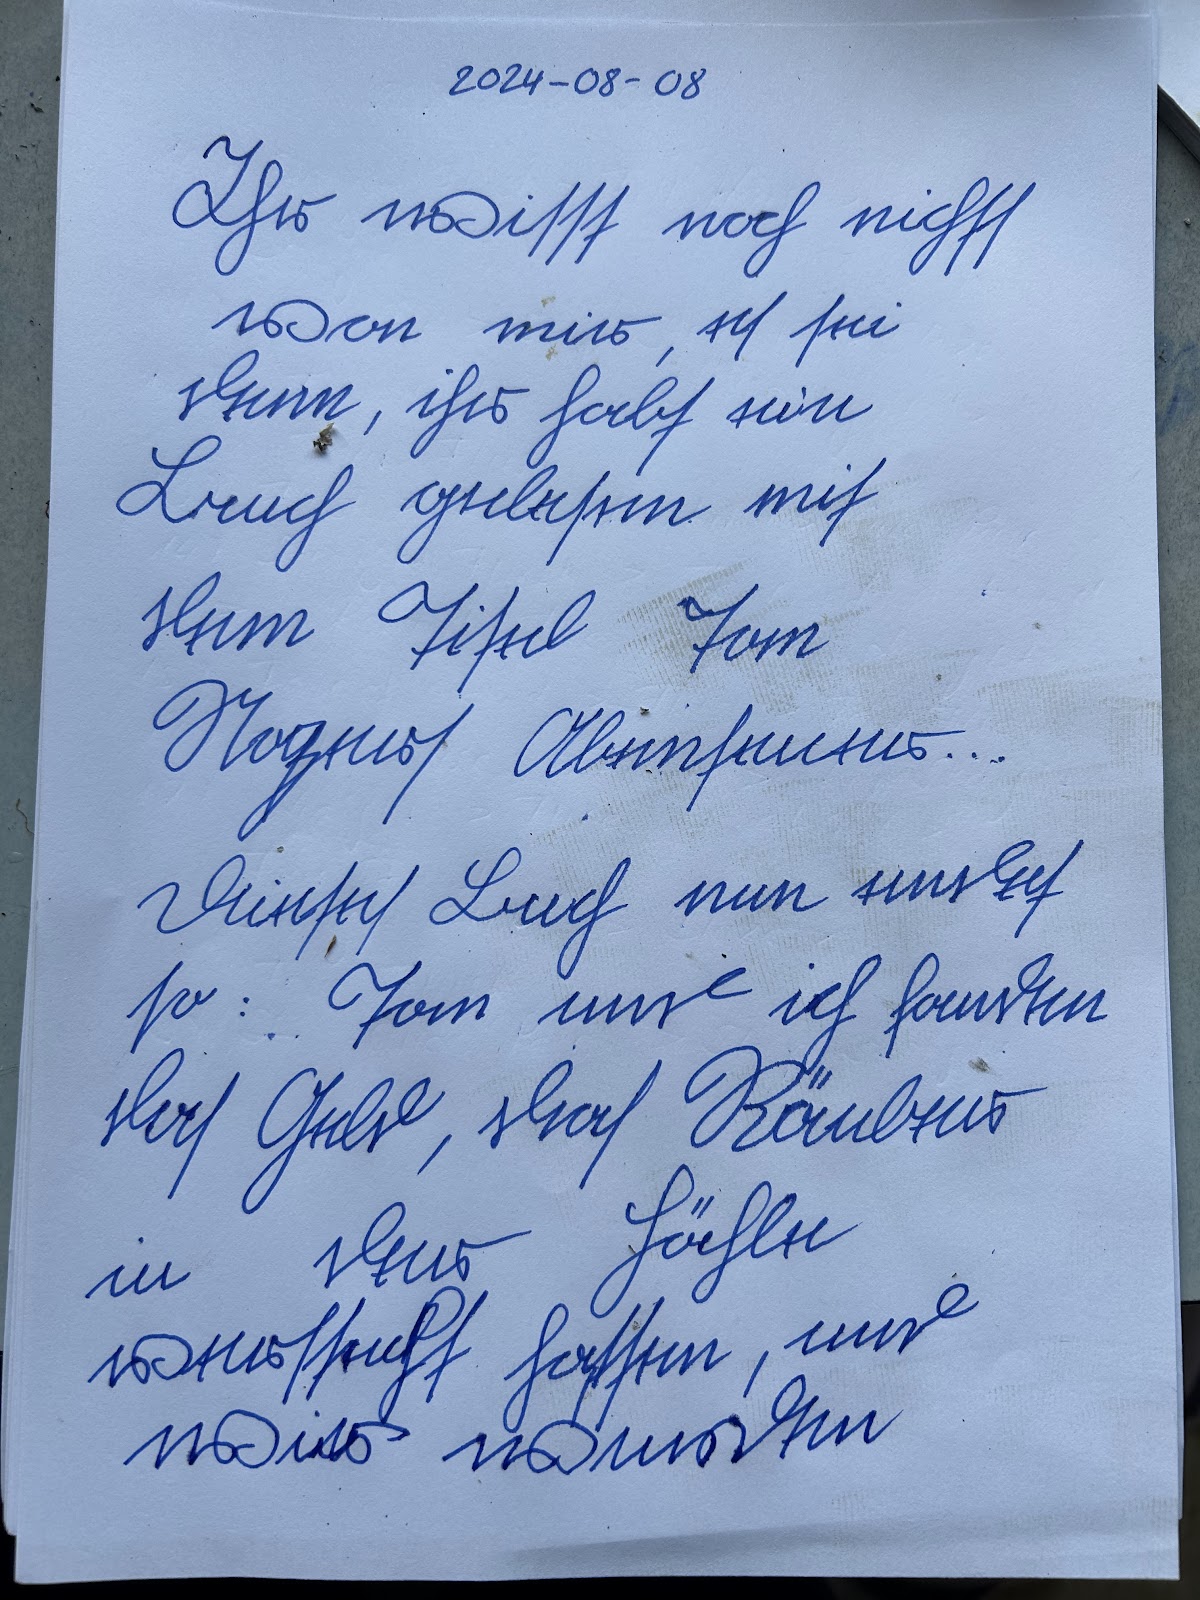 2024-08-08
Ihr wisst noch nichts
von mir, es sei
denn, ihr habt ein
Buch gelesen mit
dem Titel Tom
Sawyers Abenteuer...
Dieses Buch nun endet
so: Tom und ich fanden
das Geld, das Räuber
in der Höhle
versteckt hatten, und
wir wurden